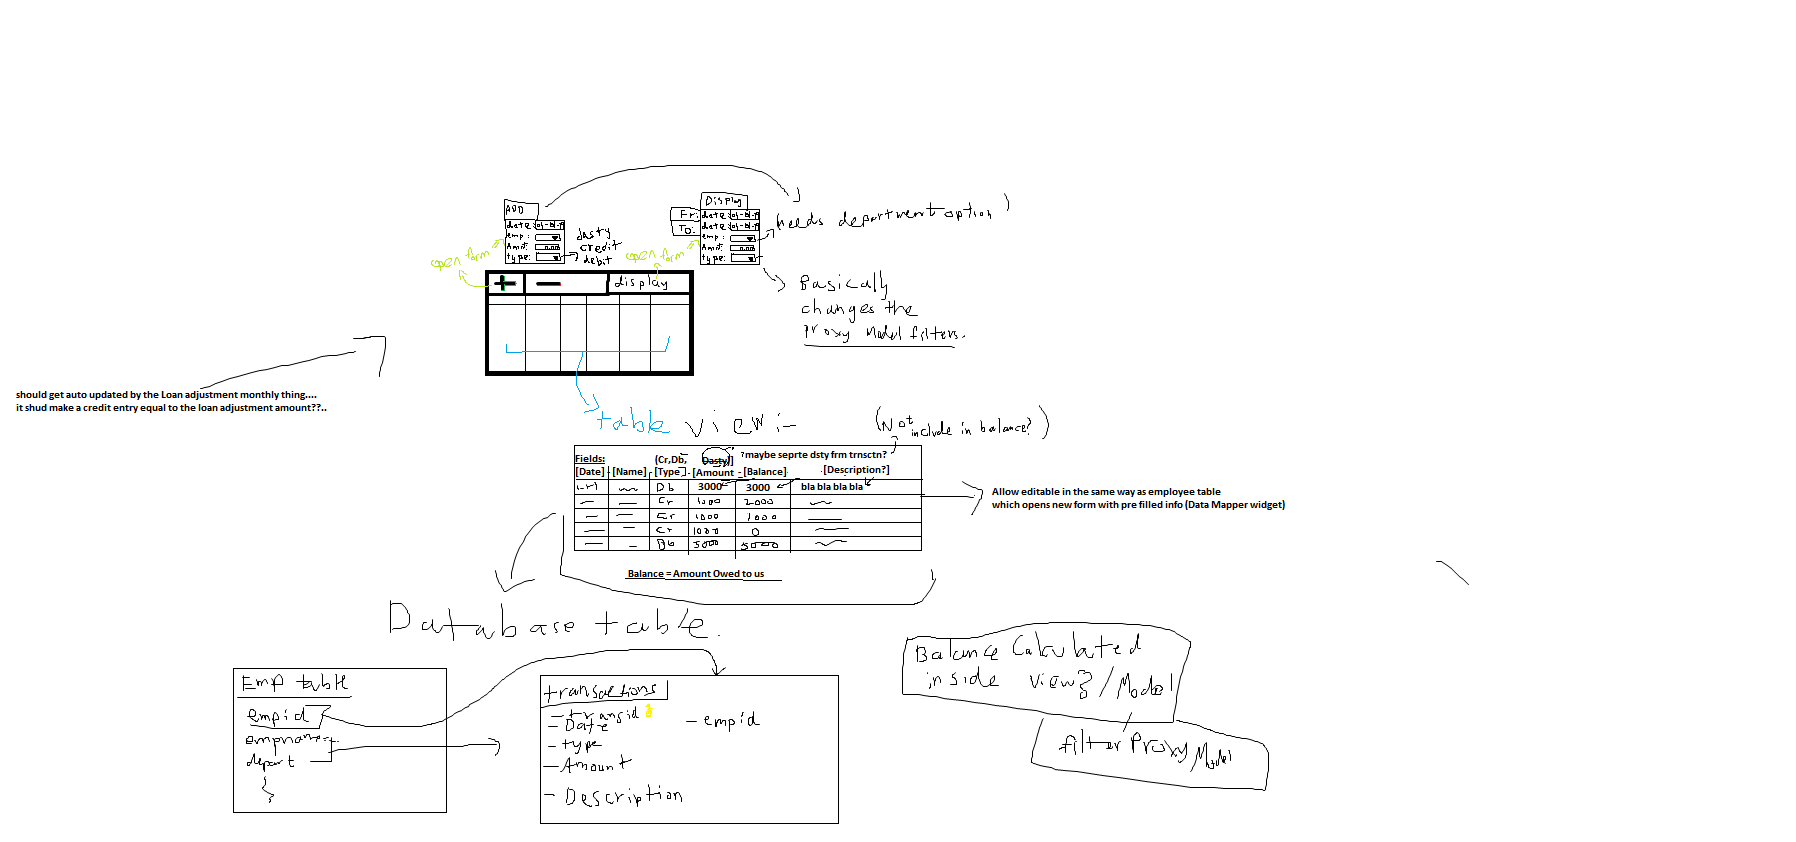 ADD
date:
emp:
Amt:
type:
dasty
credit
debit
open form
Display
Fr: date:
To: date:
emp:
Amt:
type:
open form
needs department option)
Basically
changes the
Proxy Model filters.
+ — display
should get auto updated by the Loan adjustment monthly thing....
it shud make a credit entry equal to the loan adjustment amount??..
table view:-
(Not include in balance?)
Fields: (Cr,Db, Dasty)] ?maybe seprte dsty frm trnsctn?
[Date] [Name] [Type] - [Amount - [Balance] [Description?]
Db 3000 3000 bla bla bla bla
Cr 1000 2000
Cr 1000 1000
Cr 1000 0
Db 5000 5000
Balance = Amount Owed to us
Allow editable in the same way as employee table
which opens new form with pre filled info (Data Mapper widget)
Database table.
Emp table
empid
empname
depart
transactions
- transid
- Date
- type
- Amount
- Description
- empid
Balance Calculated
inside view?/Model
filterProxyModel